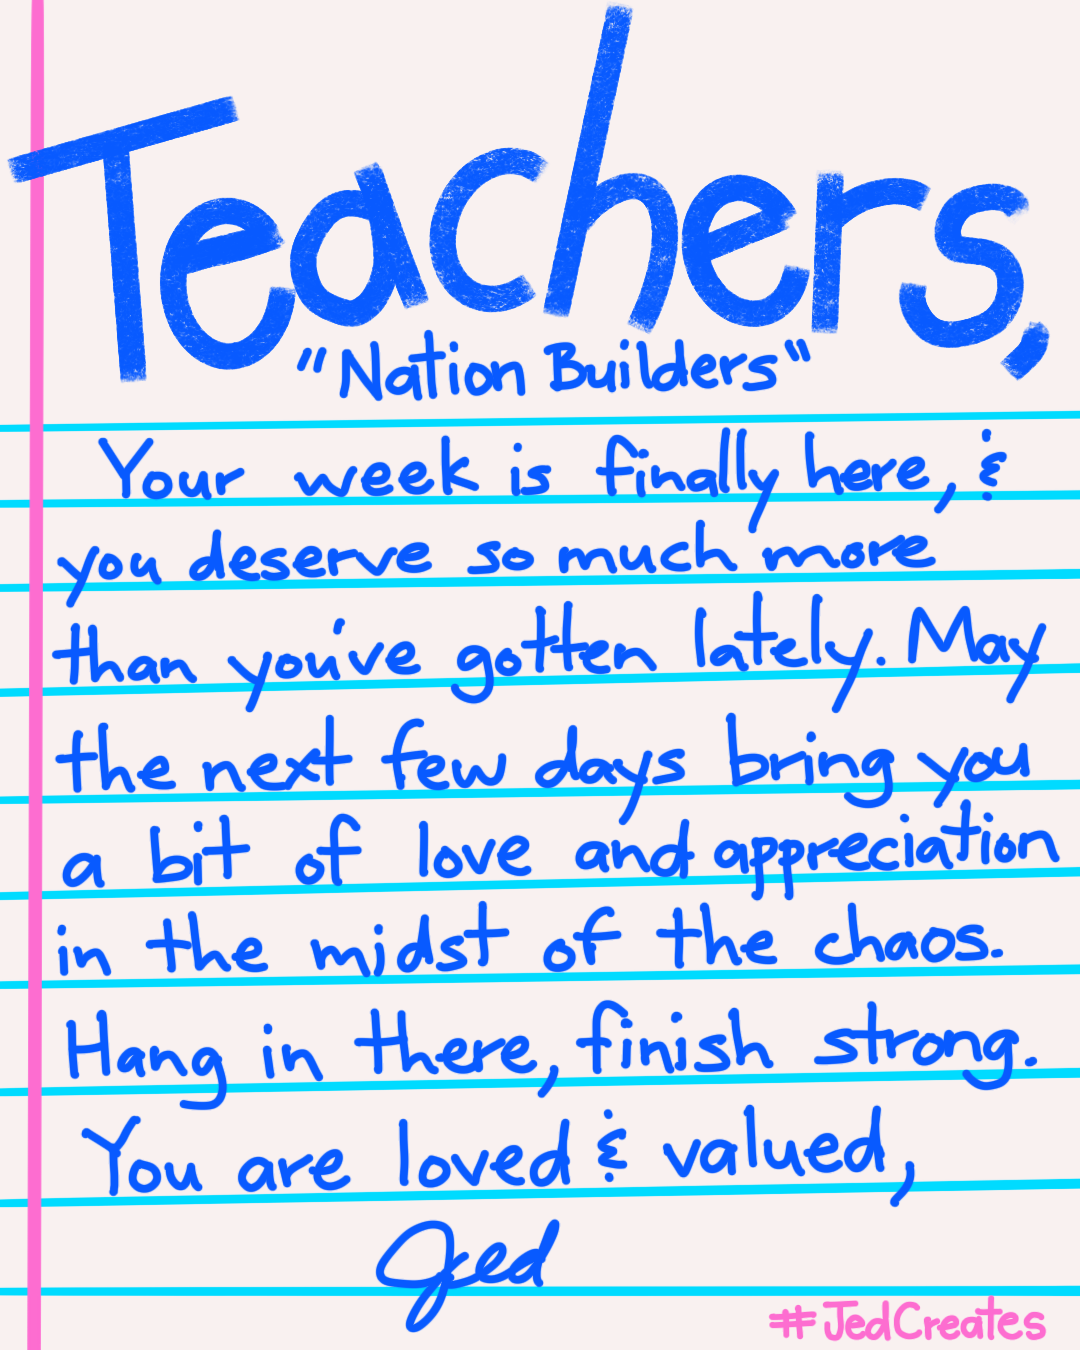 Teachers,
"Nation Builders"
Your week is finally here, &
you deserve so much more
than you've gotten lately. May
the next few days bring you
a bit of love and appreciation
in the midst of the chaos.
Hang in there, finish strong.
You are loved & valued,
Jed
#JedCreates